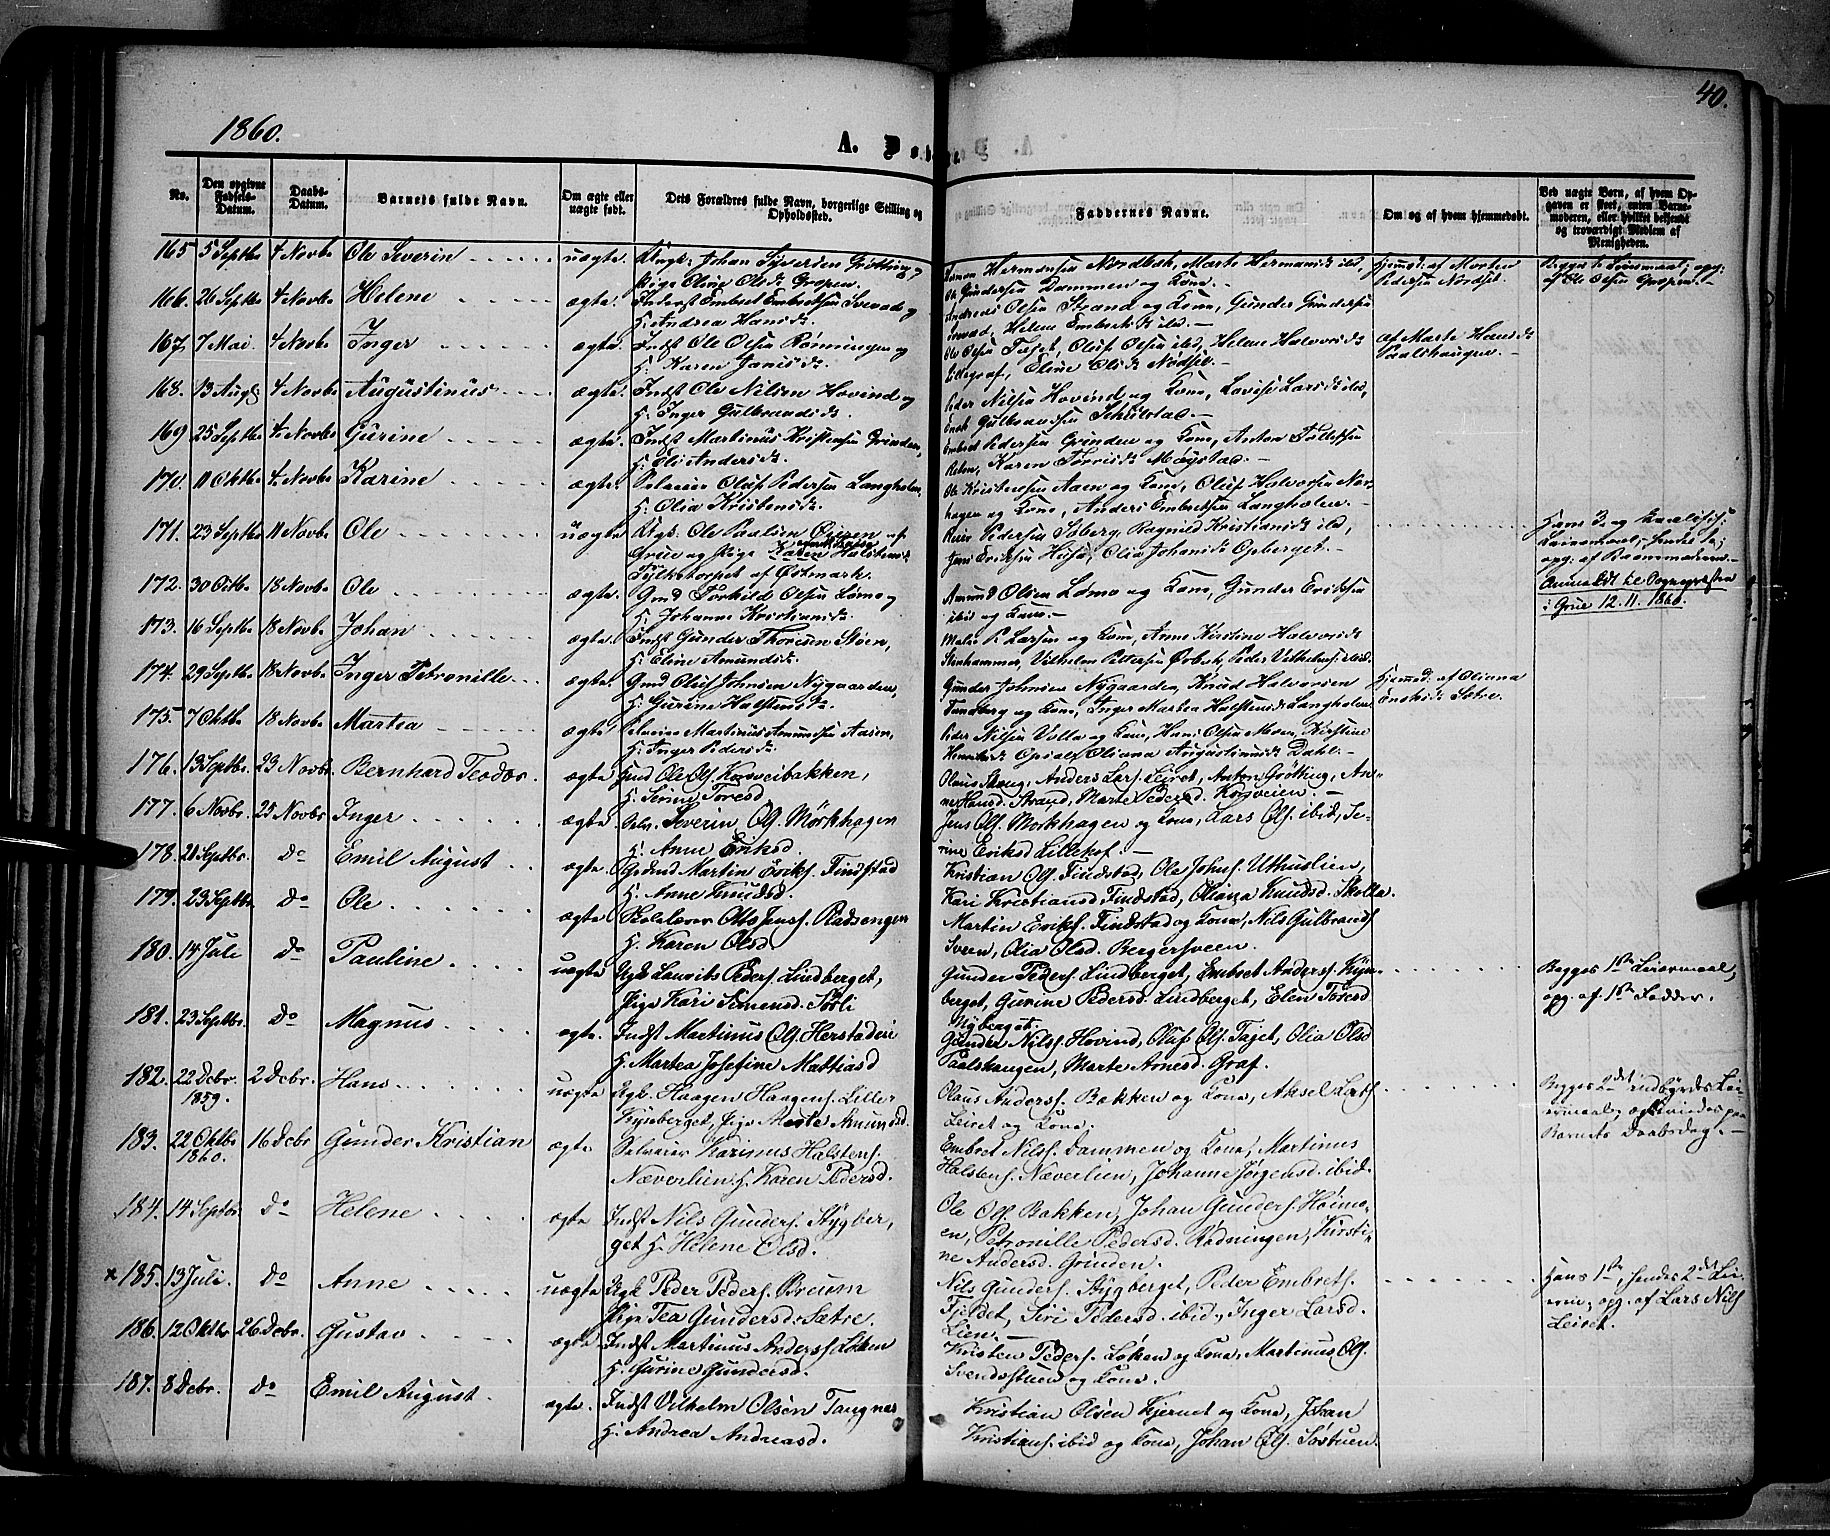 1860.
40.
A. Dø
No.
Den opgivne Fødsels-Datum.
Daabs-Datum.
Barnets fulde Navn.
Om ægte eller uægte født.
Dets Forældres fulde Navn, borgerlige Stilling og Opholdssted.
Faddernes Navne.
Om og af hvem hjemmedøbt.
Ved uægte Børn, af hvem Opgaven er skeet, enten Barnemoderen, eller hvilket bekjendt og troværdigt Medlem af Menigheden.
165 5 Septbr 4 Novbr Ole Severin uægte. Ungk: Johan Syversen Grøtting og
Pige Oline Olsdr Gropen.
Hermansen Nordbak, Marte Hermansdr ibd,
Ole Gundersen Dammen og Kone.
Hjemd: af Morten Pedersen Nordset.
Begges 1te Leiermaal; opg: af Ole Olsen Gropen.
166. 26 Septbr 4 Novbr Helene ægte. Inderst Embret Embretsen Svenad og
H: Andrea Hansdr.
Andreas Olsen Strand og Kone, Gunder Gundersen
Svenad, Helene Embretsdr ibd.
167. 7 Mai. 4 Novbr Inger ægte. Indst Ole Olsen Rønningen og
H: Karen Jonisdr.
Ole Olsen Taget, Oluf Olsen ibd, Helene Halvorsdr
Lillegraf, Eline Olsdr Nordset.
af Marte Hansdr Paalshaugen.
168. 13 Augs 4 Novbr Augustinus ægte. Indst Ole Nilsen Hovind og
H: Inger Gulbrandsdr.
Peder Nilsen Hovind og Kone, Lovise Larsdr ibd,
Gulbrandsen Schulstad.
169 25 Septbr 4 Novbr Gurine ægte. Indst Martinus Kristensen Grinden,
H: Eli Andersdr.
Embret Pedersen Grinden og Kone, Anton Tollefsen
Karen Torrisdr Møystad.
170. 11 Oktbr 4 Novbr Karine ægte. Selveier Oluf Pedersen Langholen,
H: Olia Kristensdr.
Ole Kristensen Aaen og Kone, Oluf Halvorsen Nor-
hagen og Kone, Anders Embretsen Langholen.
171. 23 Septbr 11 Novbr Ole uægte. Ungk. Ole Paulsen Øieren af
Grue og Pige Karen Halstensdr
af Østmark.
Reier Pedersen Soberg, Ragnild Kristiansdr ibd,
Jens Eriksen Huse, Olia Johansdr Opberget.
Hans 3. og
opg. af Barnemoderen.
Anmeldt til Sognepræsten
i Grue 12.11.1860.
172. 30 Octbr 18 Novbr Ole ægte. Gmd Torkild Olsen Lømo og
H: Johanne Kristiansdr.
Amund Olsen Lømo og Kone, Gunder Eriksen
ibid og Kone.
173. 16 Septbr 18 Novbr Johan ægte. Indst Gunder Thoresen Støen,
H: Eline Amundsdr.
P. Larsen og Kone, Anne Kirstine Halvorsdr
Stenhammer, Vilhelm Pettersen Ørbek, Peder Vilhelmsen ibid.
174. 29 Septbr 18 Novbr Inger Petronille ægte. Gmd Oluf Johnsen Nygaarden,
H: Gurine Halstensdr.
Gunder Johnsen Nygaarden, Knud Halvorsen
Sundberg og Kone, Inger Martea Halstensdr Langholen.
Hjemd: af Oliana
Sætre.
175. 7 Oktbr 18 Novbr Martea ægte. Selveier Martinus Amundsen Aasen,
H: Inger Pedersdr.
Peder Nilsen Volla og Kone, Hans Olsen Moen, Kirstine
Opsal, Oliana Augustinusdr Dahl.
176. 13 Septbr. 23 Novbr Bernhard Teodor. ægte Gmd Ole Ols. Korsveibakken,
H. Serine Toresd.
Olaus Skoug, Anders Lars. Leiret, Anton Grøtting, An-
ne Hansd. Strand, Marte Pedersd. Korsveien.
177. 6 Novbr. 25 Novbr Inger ægte Selv. Severin Ols. Mørkhagen
H: Anne Eriksd.
Jens Ols. Mørkhagen og Kone, Lars Ols. ibid, Se-
rine Eriksd Lillehof.
178. 21 Septbr. do Emil August ægte Gmd Martin Eriks. Findstad
H. Anne Knudsd.
Kristian Ols. Findstad, Ole Johns. Uthuslien,
Kari Kristiansd Findstad, Oliana Knudsd. Skolta.
179. 23 Septbr do Ole ægte Skolelærer Otto Jens. Rudsengen
H. Karen Olsd.
Martin Eriks. Findstad og Kone, Nils Gulbrands.
Sveen, Olia Olsd. Bergersveen.
180. 14 Juli do Pauline uægte Ugk Laurits Peders. Lindberget,
Pige Kari Simensd. Sorli
Gunder Peders. Lindberget, Embret Anders. Kyn-
berget, Gurine Pedersd. Lindberget, Elen Toresd
Nyberget.
Begges 1ste Leiermaal,
opg. af 1ste Fadder.
181. 23 Septbr. do Magnus ægte. Indst Martinus Ols. Herstaden
H. Martea Josefine Mattiasd
Gunder Nils. Hovind, Oluf Ols. Taget, Olia Olsd
Paalshaugen, Marte Arnesd. Graf.
182. 22 Dcbr. 1859. 2 Dcbr. Hans uægte Ugk. Haagen Haagens. Lille-
Kynberget, Pige Marte Amundsd.
Olaus Anders. Bakken og Kone, Aksel Lars.
Leiret og Kone.
Begges 2det indbyrdes Lei-
ermaal, opg.
Barnets Daabsdag.
183. 22 Oktbr 1860. 16 Dcbr Gunder Kristian ægte Selveier Karinus Halstens.
Næverlien, H. Karen Pedersd.
Embret Nils. Dammen og Kone, Martinus
Halstens. Næverlien, Johanne Jørgensd. ibid.
184. 14 Septbr. do Helene ægte Indst Nils Gunders. Stygber-
get H. Helene Olsd.
Ole Ols. Bakken, Johan Gunders. Heimo-
en, Petronille Pedersd. Rødningen, Kirsti-
ne Andersd. Grinden.
x 185. 13 Juli. do Anne uægte Ugk Peder Peders. Breum
Pige Tea Gundersd. Sætre.
Nils Gunders. Stygberget, Peder Embrets.
Fjeldet, Siri Pedersd. ibid, Inger Larsd.
Lien.
Hans 1ste, hendes 2det Lei-
erm., opg. af Lars Nils.
Leiret.
186. 12 Oktbr 26 Dcbr. Gustav ægte Indst Martinus Anders. Løken
H. Gurine Gundersd.
Kristen Peders. Løken og Kone, Martinus Ols.
Svendsstuen og Kone.
187. 8 Dcbr. do Emil August. ægte. Indst Vilhelm Olsen Tangnæs
H. Andrea Andreasd.
Kristian Olsen Kjernet og Kone, Johan
Kristians. ibid og Kone, Johan Ols. Sostuen.